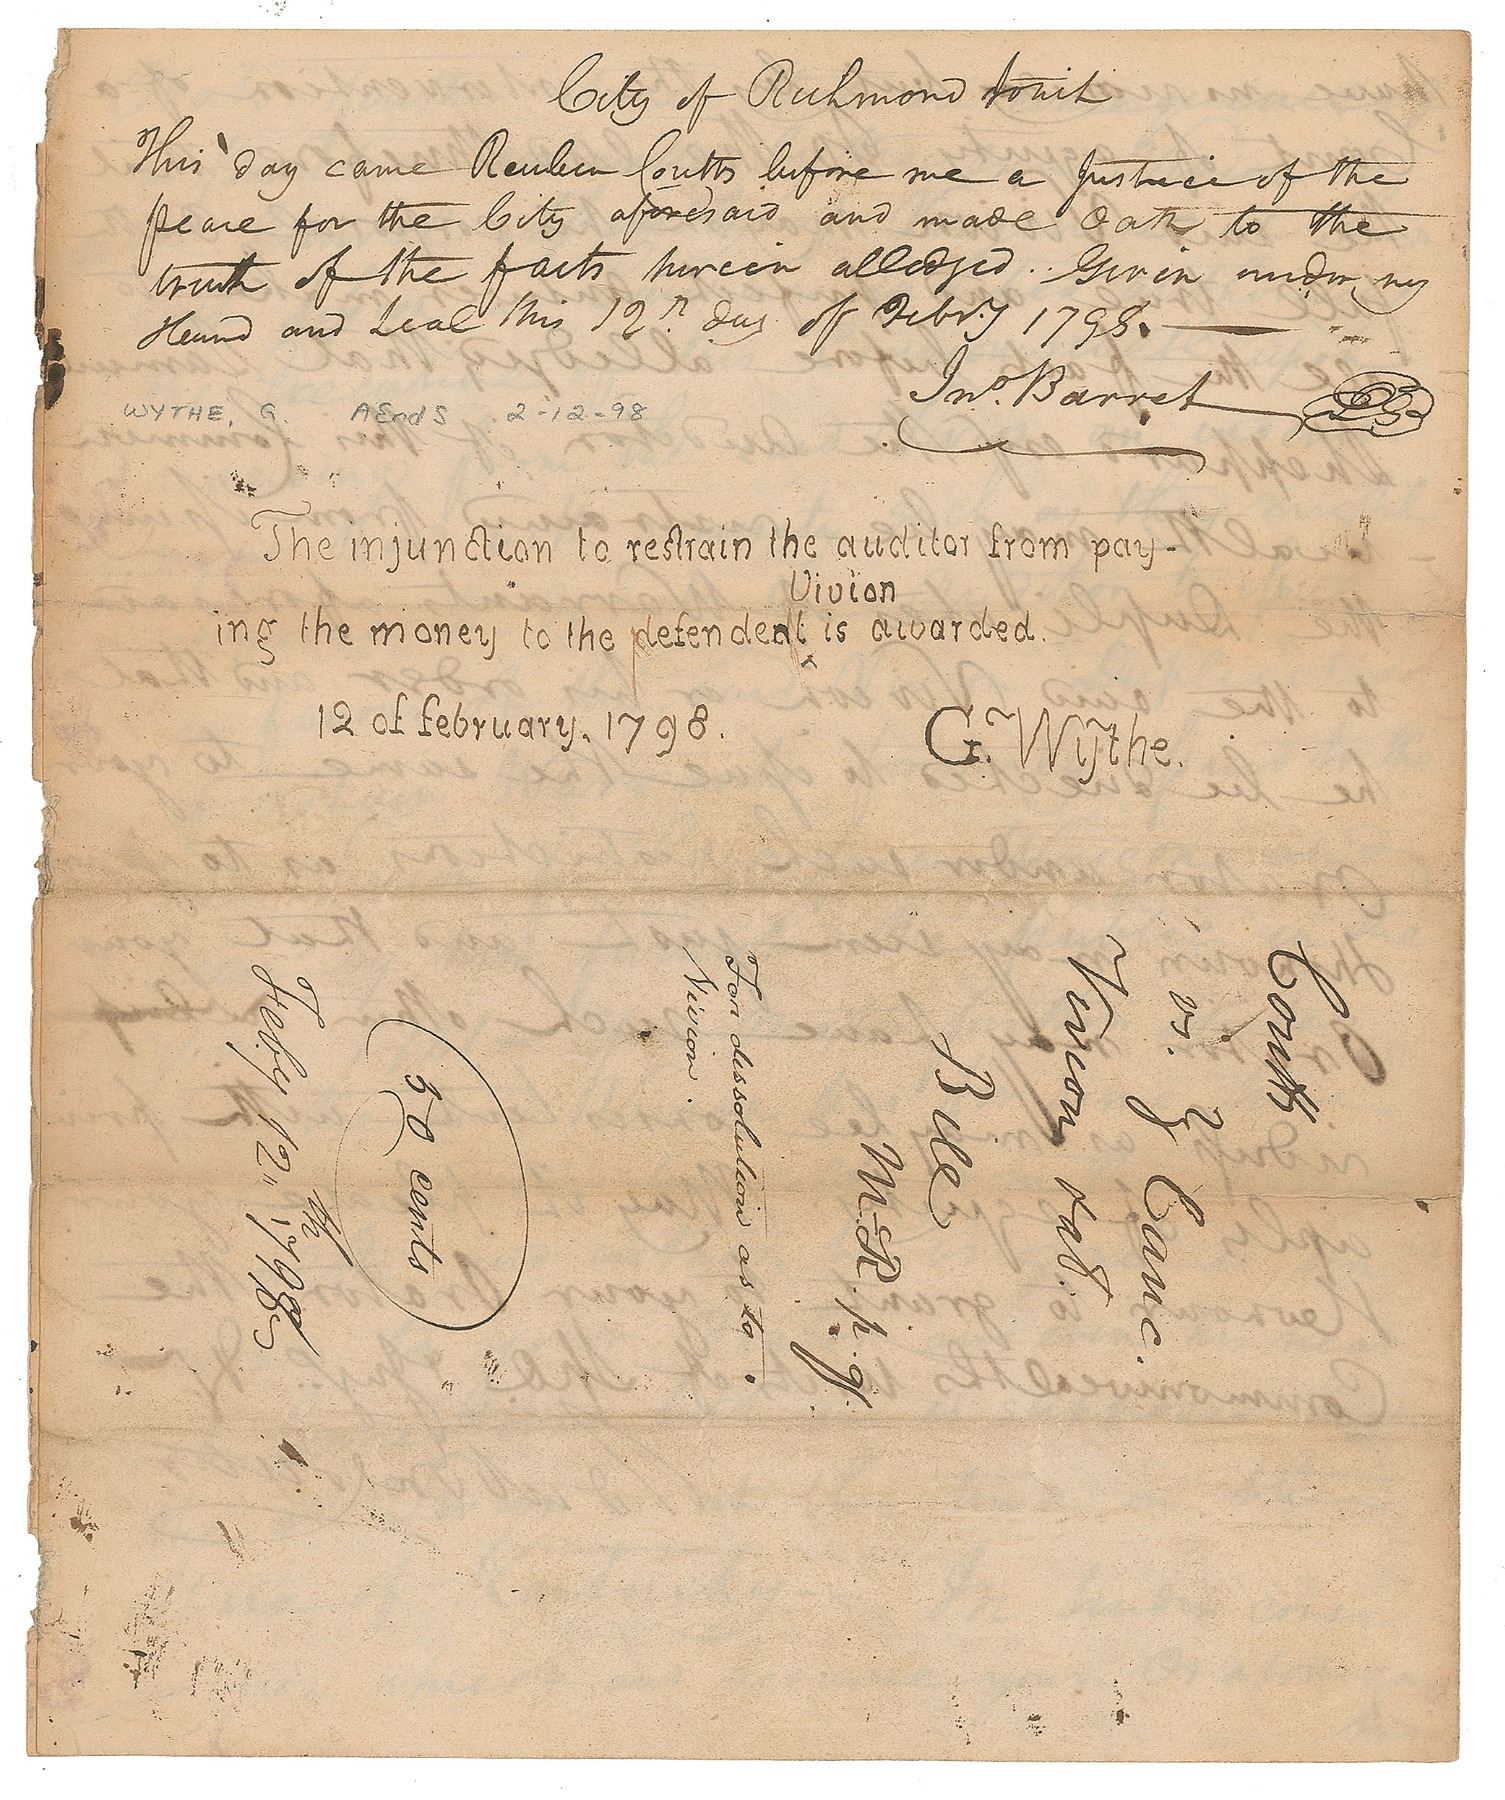 City of Richmond towit
This day came Reuben Coutts before me a Justice of the
peace for the City aforesaid and made Oath to the
truth of the facts herein alledged. Given under my
Hand and Seal this 12th day of Febry 1798.
Jno. Barret
WYTHE, G. AEndS 2-12-98
The injunction to restrain the auditor from pay-
Vivion
ing the money to the defendent is awarded.
12 of february, 1798.
G. Wythe.
Coutts
vs. } Canc.
Vivion &al.
Bill
M-R. p. q.
For dissolution as to
Vivion.
50 cents
Feby 12th 1798